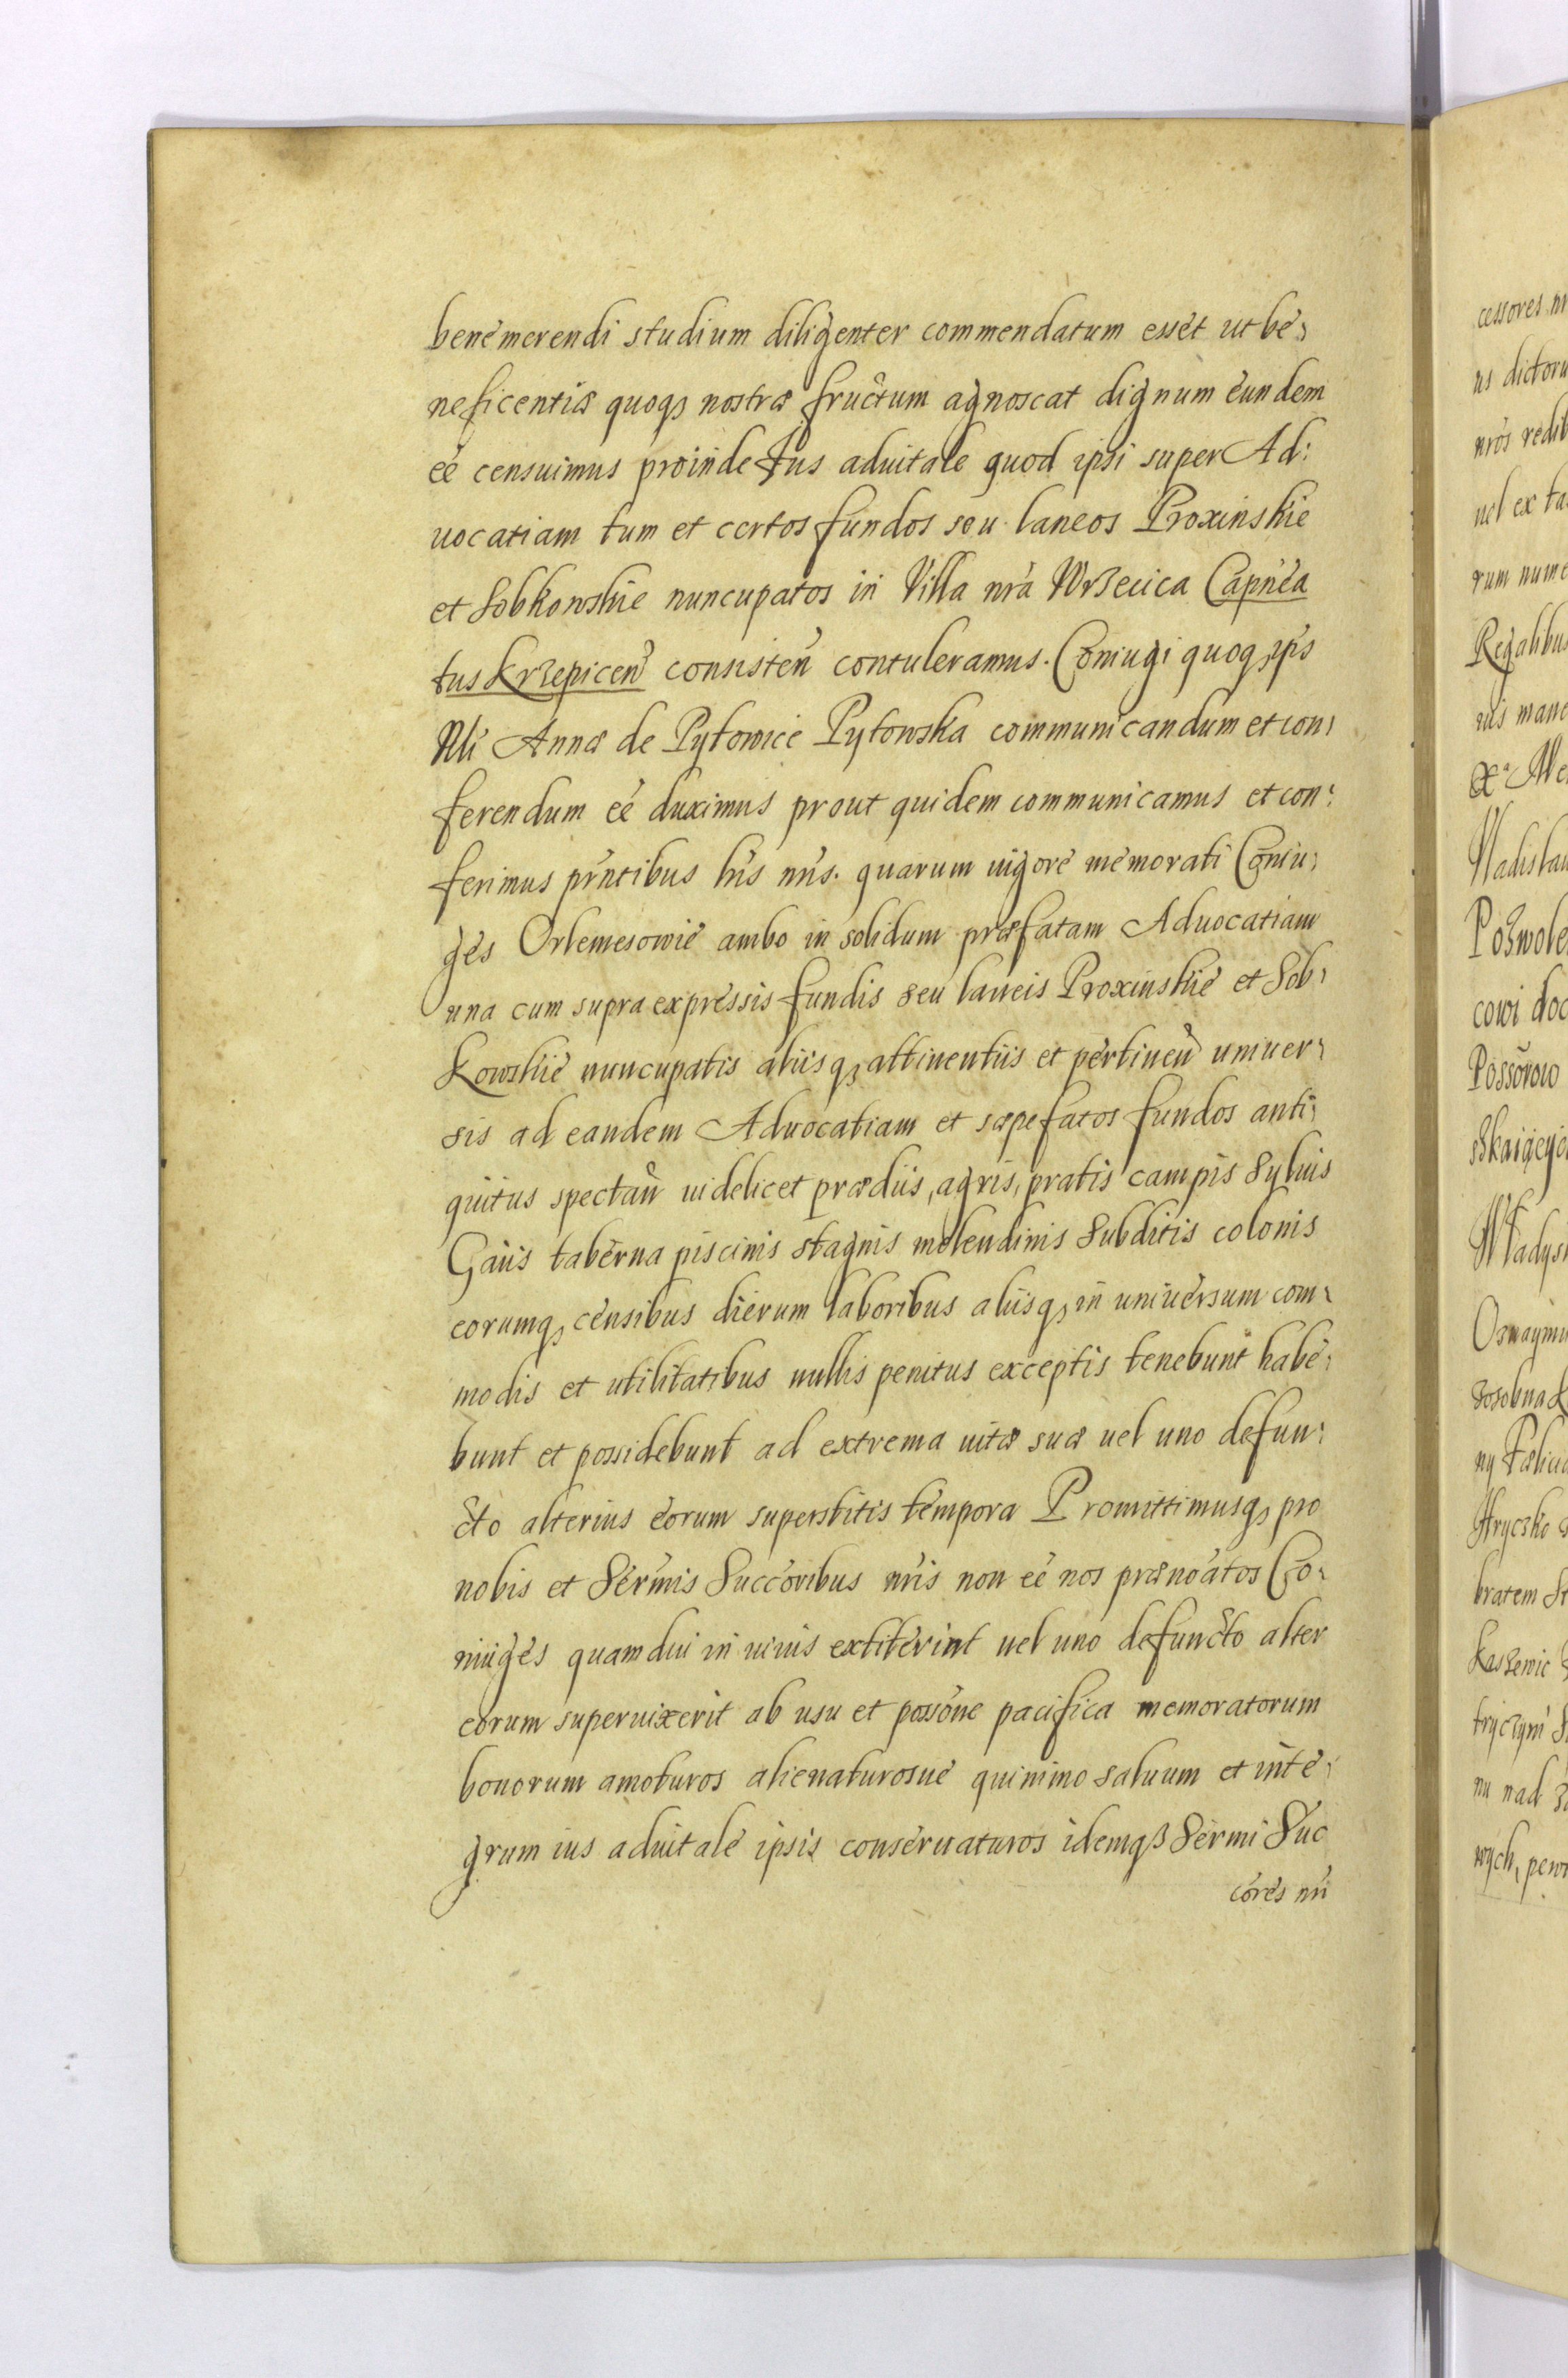 benemerendi studium diligenter commendatum esset ut be,
neficentiæ quoq3 nostræ fructum agnoscat dignum eundem
eé censuimus proinde Ius aduitale quod ipsi super Ad:
uocatiam tum et certos fundos seu laneos Proxinskie
et Sobkowskie nuncupatos in Villa nrã Wrzecica Capnéa
tus Krzepiceñ consisteñ contuleramus. Coniugi quoq3 ips
Nli Annæ de Pytowice Pytowska communicandum et con,
ferendum eé duximus prout quidem communicamus et con:
ferimus prñtibus his nris. quarum uigore memorati Coniu,
ges Orlemesowie ambo in solidum præfatam Aduocatiam
una cum supra expressis fundis seu laneis Proxinskie et Sob,
kowskie nuncupatis aliisq3 attinentiis et pertineñ uniuer,
sis ad eandem Aduocatiam et sæpefatos fundos anti,
quitus spectañ uidelicet prædiis, agris, pratis campis Syluis
Gaiis taberna piscinis stagnis molendinis Subditis colonis
eorumq3 censibus dierum laboribus aliisq3 in uniuersum com,
modis et utilitatibus nullis penitus exceptis tenebunt habe,
bunt et possidebunt ad extrema uitæ suæ uel uno defun,
cto alterius eorum superstitis tempora Promittimusq3 pro
nobis et Sermis Succoribus nris non eé nos prænoatos Co,
niuges quamdiu in uiuis extiterint uel uno defuncto alter
eorum superuixerit ab usu et possone pacifica memoratorum
bonorum amoturos alienaturosue quinimo saluum et inte,
grum ius aduitale ipsis conseruaturos idemq3 Sermi Suc
cores nri
cessores nr
us dictoru
nros redit
uel ex ta
rum nume
Regalibus
Wladislau
Pozwole
cowi doc
Possorow
Hryczko
bratem St
Kaszewic
nu nad